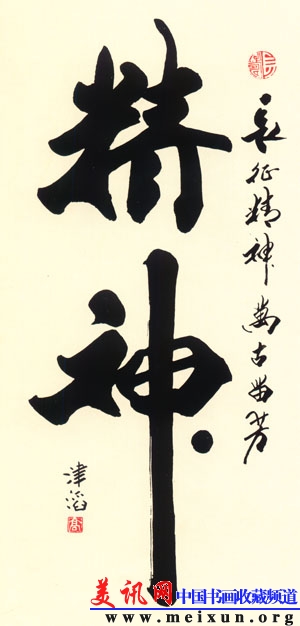 长征精神萬古留芳
精神
津滔
美讯网中国书画收藏频道
www.meixun.org